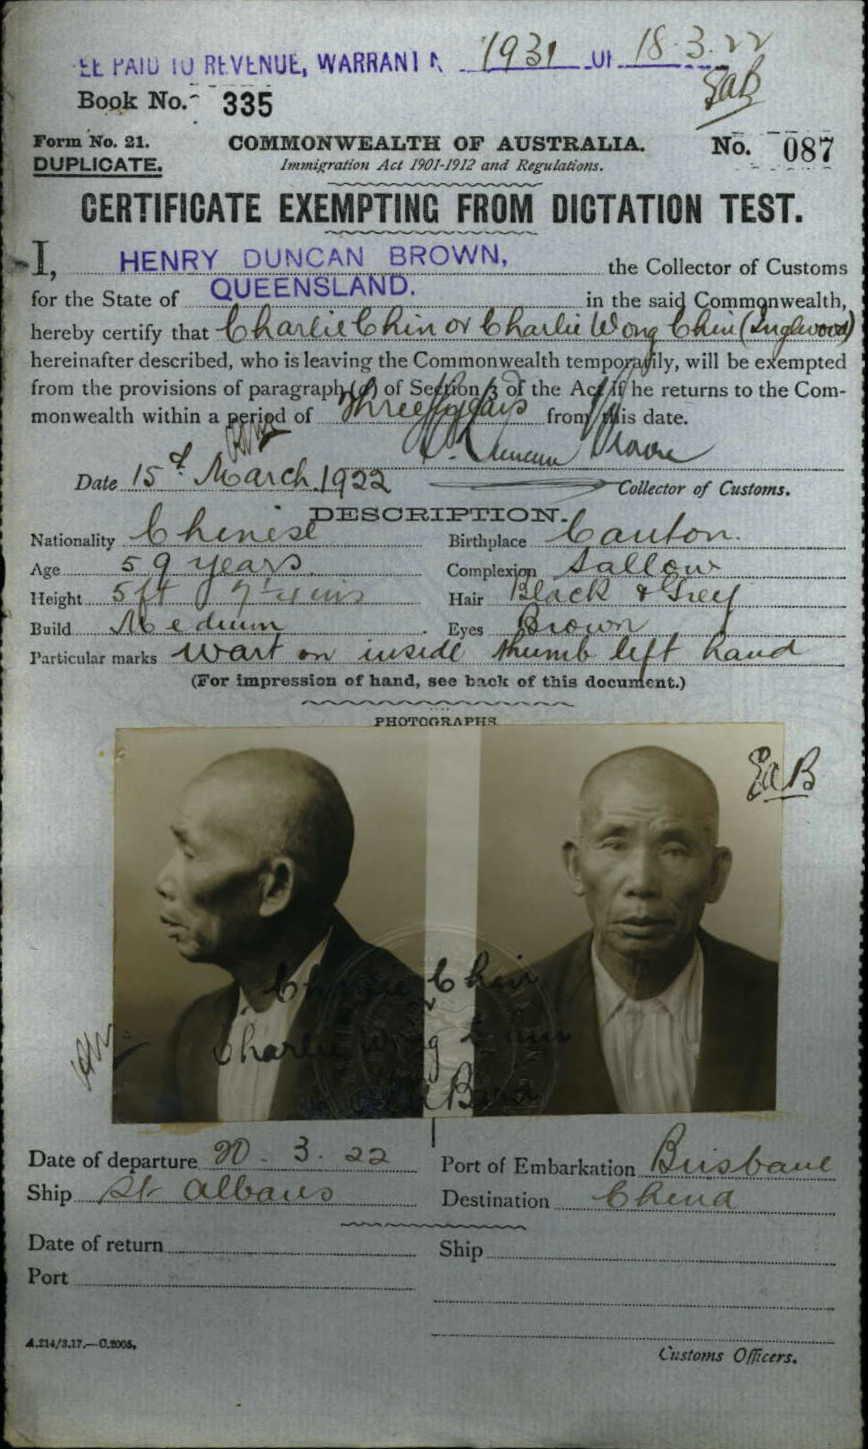 PAID TO REVENUE, WARRANT 1931 OF 18.3.22
EaB
Book No. 335
Form No. 21. COMMONWEALTH OF AUSTRALIA. No. 087
DUPLICATE. Immigration Act 1901-1912 and Regulations.
CERTIFICATE EXEMPTING FROM DICTATION TEST.
I, HENRY DUNCAN BROWN, the Collector of Customs
for the State of QUEENSLAND. in the said Commonwealth,
hereby certify that Charlie Chin or Charlie Wong Chin (Inglewood)
hereinafter described, who is leaving the Commonwealth temporarily, will be exempted
from the provisions of paragraph (a) of Section 3 of the Act if he returns to the Com-
monwealth within a period of Three years from this date.
H. Duncan Brown
Date 15th March 1922 Collector of Customs.
DESCRIPTION.
Nationality Chinese Birthplace Canton.
Age 59 years Complexion Sallow
Height 5ft Hair Black & Grey
Build Medium Eyes Brown
Particular marks Wart on inside thumb left hand
(For impression of hand, see back of this document.)
PHOTOGRAPHS
EaB
Charlie Chin
or
Charlie Wong Chin
Date of departure 20-3-22 Port of Embarkation Brisbane
Ship St Albans Destination China
Date of return Ship
Port
A.214/3.17.—C.2005. Customs Officers.